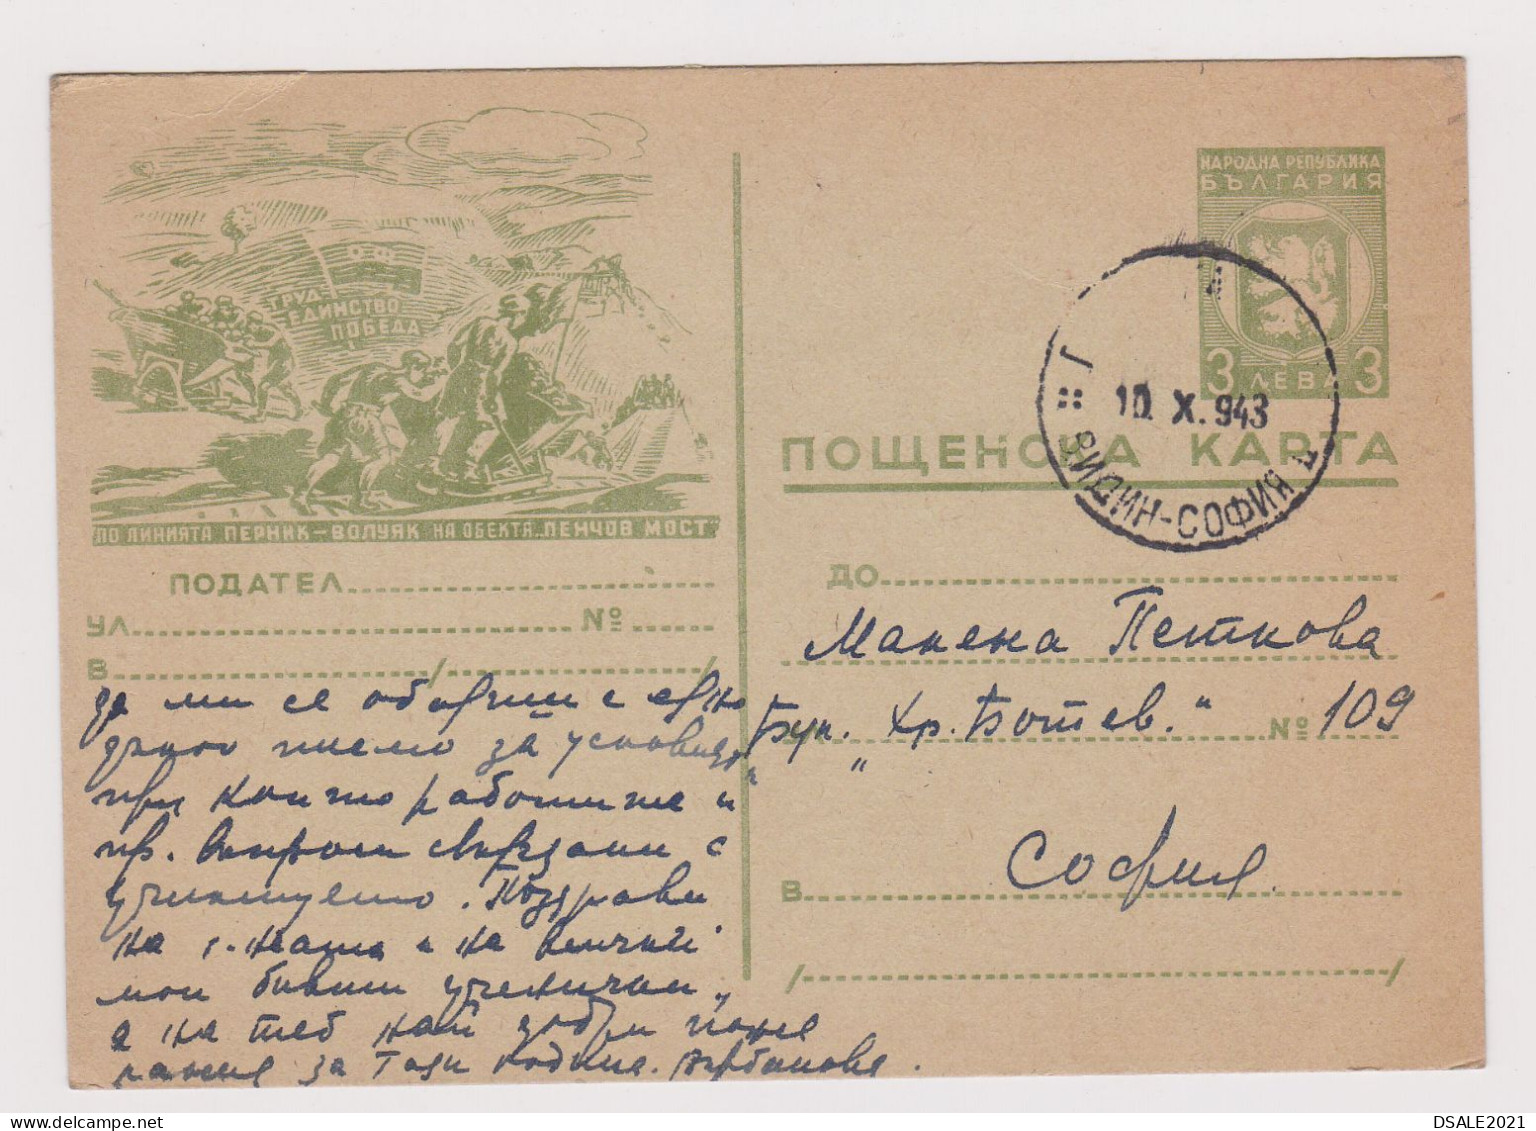 НАРОДНА РЕПУБЛИКА
БЪЛГАРИЯ
3 ЛЕВА 3
ПОЩЕНСКА КАРТА
10. X. 943
ВИДИН-СОФИЯ
О.Ф.
ТРУД
ЕДИНСТВО
ПОБЕДА
ПО ЛИНИЯТА ПЕРНИК-ВОЛУЯК НА ОБЕКТА „ПЕНЧОВ МОСТ"
ПОДАТЕЛ
УЛ. №
В / /
да ми се обадиш с едно
писмо за условия
при които работите и
пр. въпроси свързани с
училището. Поздрави
на и на всички
мои бивши ученички,
а на теб най добри поже
лания за тази година. Върбанова.
ДО
Малена Петкова
Бул. „Хр. Ботев." № 109
В София
/ /
DSALE2021